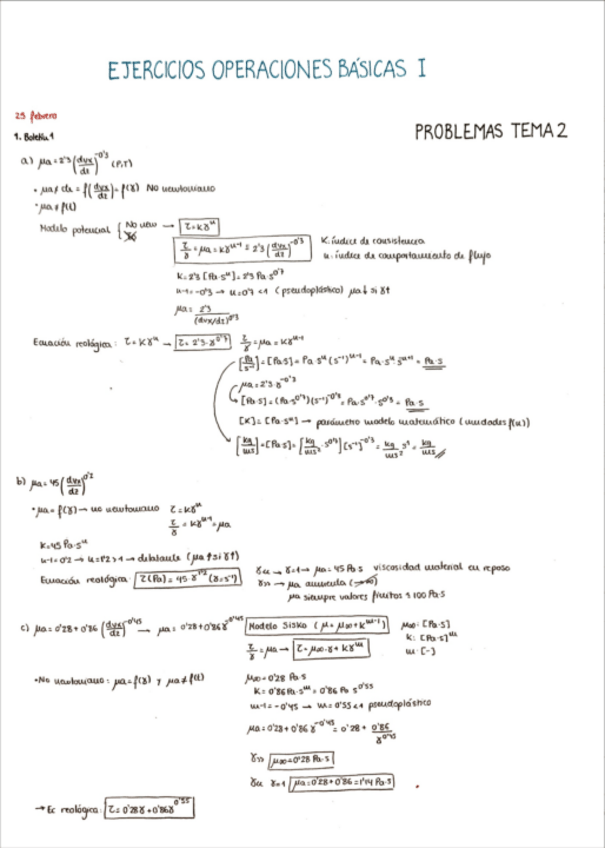 EJERCICIOS OPERACIONES BÁSICAS I
25 febrero
PROBLEMAS TEMA 2
1. Boletín 1
a) μa = 2'3 (dvx/dz)^-0'3 (P,T)
• μa ≠ cte = f(dvx/dz) = f(γ) No newtoniano
• μa ≠ f(t)
Modelo potencial { No new → τ = Kγ^n
τ/γ = μa = Kγ^n-1 = 2'3 (dvx/dz)^-0'3
K: índice de consistencia
n: índice de comportamiento de flujo
K = 2'3 [Pa·s^n] = 2'3 Pa·s^0'7
n-1 = -0'3 → n = 0'7 < 1 (pseudoplástico) μa ↓ si γ↑
μa = 2'3 / (dvx/dz)^0'3
Ecuación reológica: τ = Kγ^n → τ = 2'3·γ^0'7 τ/γ = μa = Kγ^n-1
[Pa/s^-1] = [Pa·s] = Pa·s^n (s^-1)^n-1 = Pa·s^n·s^-n+1 = Pa·s
μa = 2'3·γ^-0'3
[Pa·s] = (Pa·s^0'7)(s^-1)^-0'3 = Pa·s^0'7·s^0'3 = Pa·s
[K] = [Pa·s^n] → parámetro modelo matemático (unidades f(n))
[kg/ms] = [Pa·s] = [kg/ms²·s^0'7][s^-1]^-0'3 = kg/ms² s^1 = kg/ms
b) μa = 45 (dvx/dz)^0'2
• μa = f(γ) → no newtoniano τ = Kγ^n
τ/γ = Kγ^n-1 = μa
K = 45 Pa·s^n
n-1 = 0'2 → n = 1'2 > 1 → dilatante (μa ↑ si γ↑)
Ecuación reológica: τ(Pa) = 45·γ^1'2 (γ = s^-1)
γ<< → γ = 1 → μa = 45 Pa·s viscosidad material en reposo
γ>> → μa aumenta (→∞)
μa siempre valores finitos ≤ 100 Pa·s
c) μa = 0'28 + 0'86 (dvx/dz)^-0'45 → μa = 0'28 + 0'86γ^-0'45 Modelo Sisko (μ = μ∞ + K^n-1)
τ/γ = μa → τ = μ∞·γ + Kγ^n
μ∞: [Pa·s]
K: [Pa·s]^n
n: [-]
• No newtoniano: μa = f(γ) y μa ≠ f(t)
μ∞ = 0'28 Pa·s
K = 0'86 Pa·s^n = 0'86 Pa s^0'55
n-1 = -0'45 → n = 0'55 < 1 pseudoplástico
μa = 0'28 + 0'86 γ^-0'45 = 0'28 + 0'86/γ^0'45
γ>> μ∞ = 0'28 Pa·s
γ<< γ=1 μa = 0'28 + 0'86 = 1'14 Pa·s
→ Ec reológica: τ = 0'28γ + 0'86γ^0'55